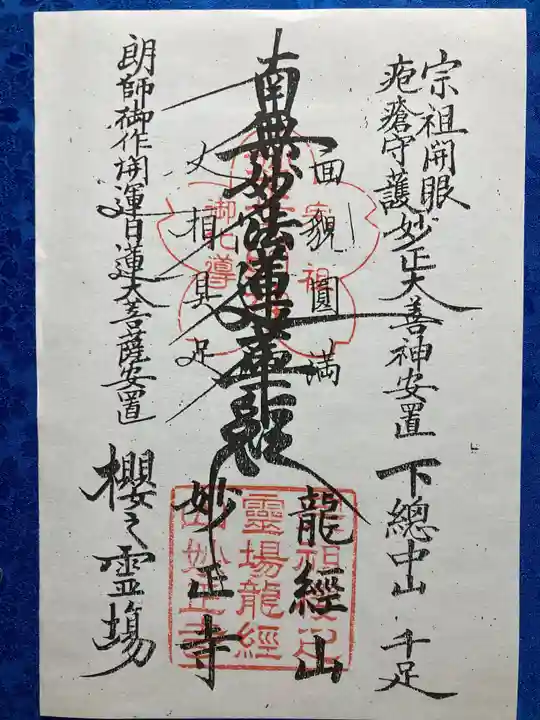 宗祖開眼
疱瘡守護妙正大善神安置
下總中山千足
面貌圓満
龍經山
南無妙法蓮華經
丈相具足
妙正寺
朗師御作開運日蓮大菩薩安置
櫻之霊場
霊場龍經